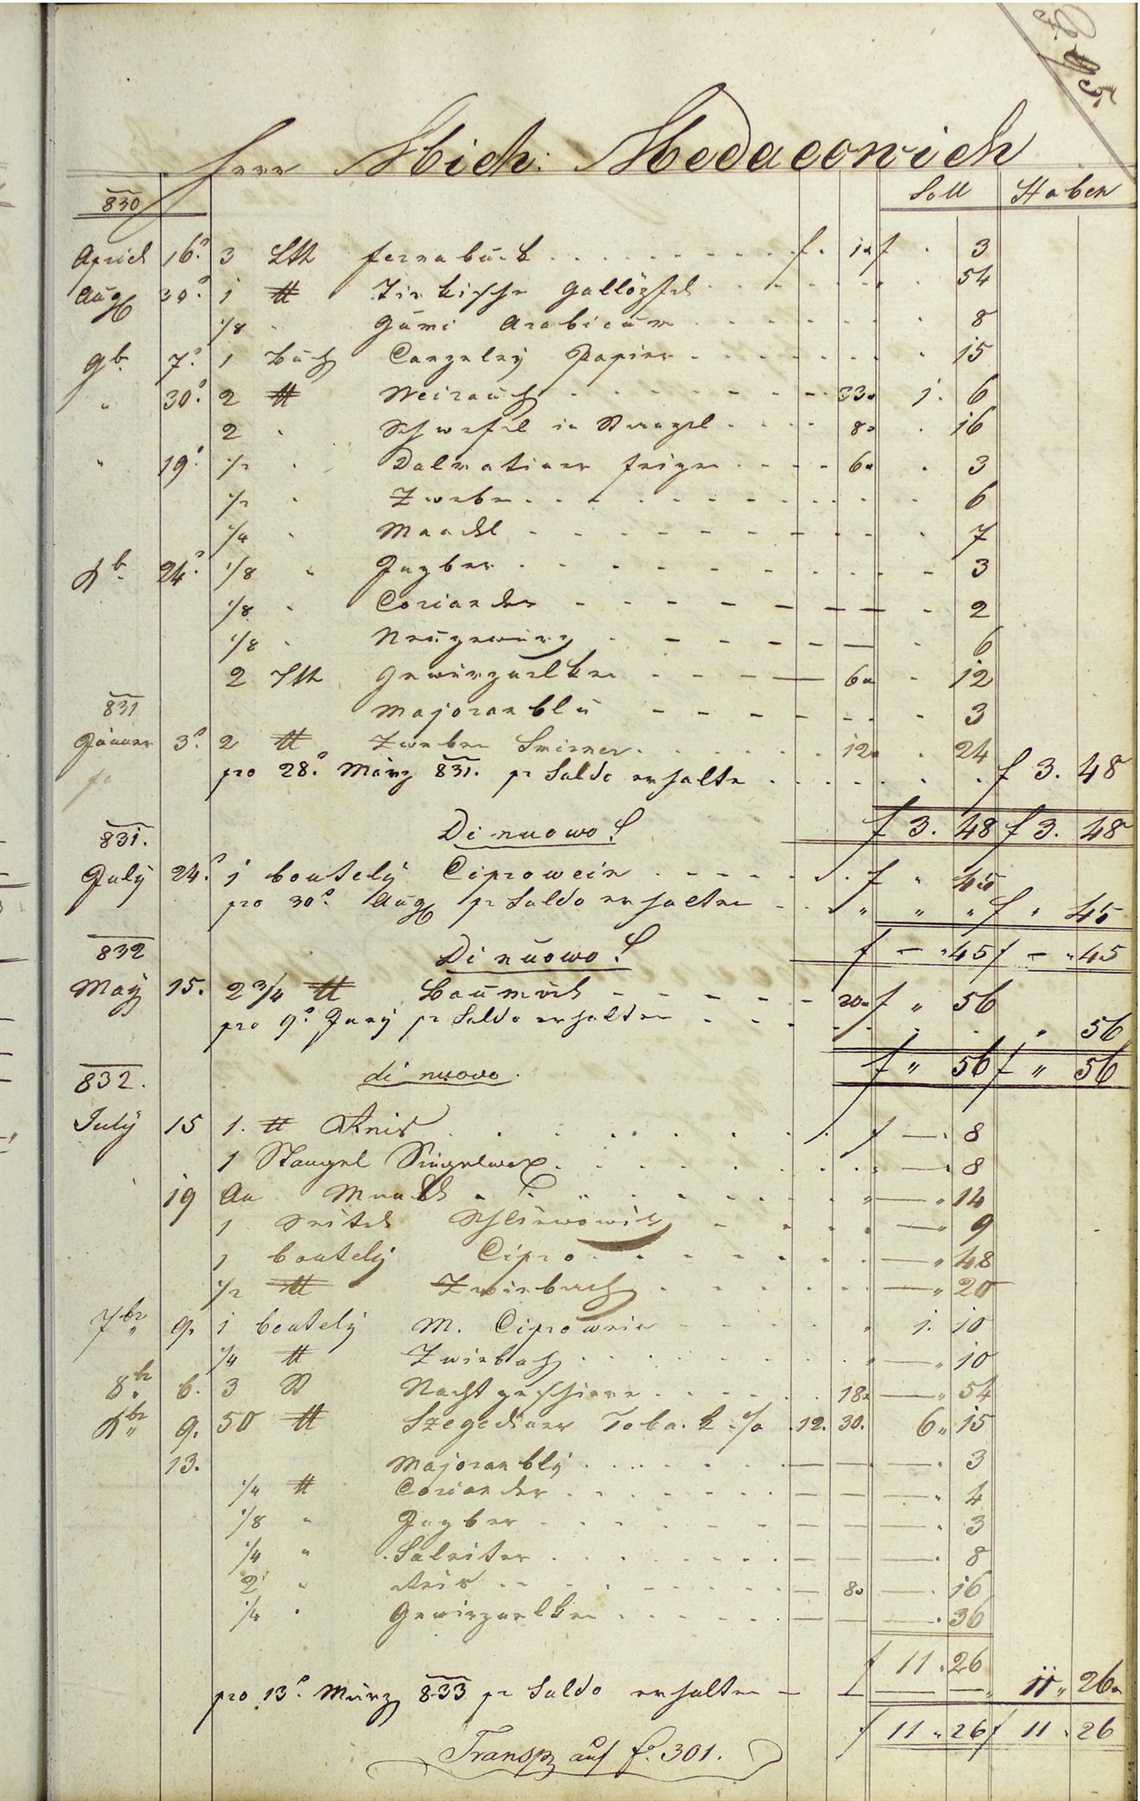 295
Herr Mich: Medacovich
830 Soll Haben
April 16. 3 Lth fernabuck f. 1" f . 3
Aug 30. 1 ℔ Tirkische Gallöpfel . 54
1/8 " Gumi Arabicum . 8
9b. 7. 1 Buch Canzeley Papier . 15
" 30. 2 ℔ Weirauch 33" 1. 6
2 " Schwefel in Stangel 8" . 16
" 19. 1/2 " Dalmatiner feigen 6" . 3
1/2 " Zweben 6
1/4 " Mandl . 7
Xb. 24. 1/8 " Jngber 3
1/8 " Coriander 2
1/8 " Neugewürz 6
2 Lth Gewürznelken 6" . 12
831 Majoranblü . 3
Jänner 3. 2 ℔ Zweben Smirner 12" . 24
pro 28. März 831. pr Saldo erhalte f 3. 48
f 3. 48 f 3. 48
831. Di nuowo
July 24. 1 boutely Ciprowein f " 45
pro 30. Aug pr Saldo erhalten " " " f " 45
f — " 45 f — " 45
832 Di nuowo
May 15. 2 3/4 ℔ Baumöhl 20" f " 56
pro 9. Juny pr Saldo erhalten " 56
f " 56 f " 56
832. di nuovo.
July 15 1. ℔ Anis f — . 8
1 Stangel Siegelwax — " 8
19 Mandl " — " 14
1 Seitel Schliwowitz — " 9
1 boutely Cipro — " 48
1/2 ℔ Zwieback — " 20
7br 9. 1 boutely M. Ciprowein " 1. 10
1/4 ℔ Zwieback — " 10
8br 6. 3 St Nachtgeschirre 18" — " 54
Xbr 9. 50 ℔ Szegediner Toback 12. 30. 6 " 15
13. Majoranbly — . 3
1/4 ℔ Coriander — " 4
1/8 " Jngber — . 3
1/4 " Saliter — . 8
2 " Reis 8" — . 16
1/4 " Gewirznelken — . 36
f 11 . 26
pro 13. März 833 pr Saldo erhalten — — — " 11 " 26"
f 11 " 26 f 11 " 26
Transp auf fo. 301.